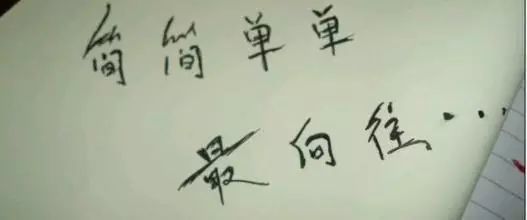 简简单单
最向往…